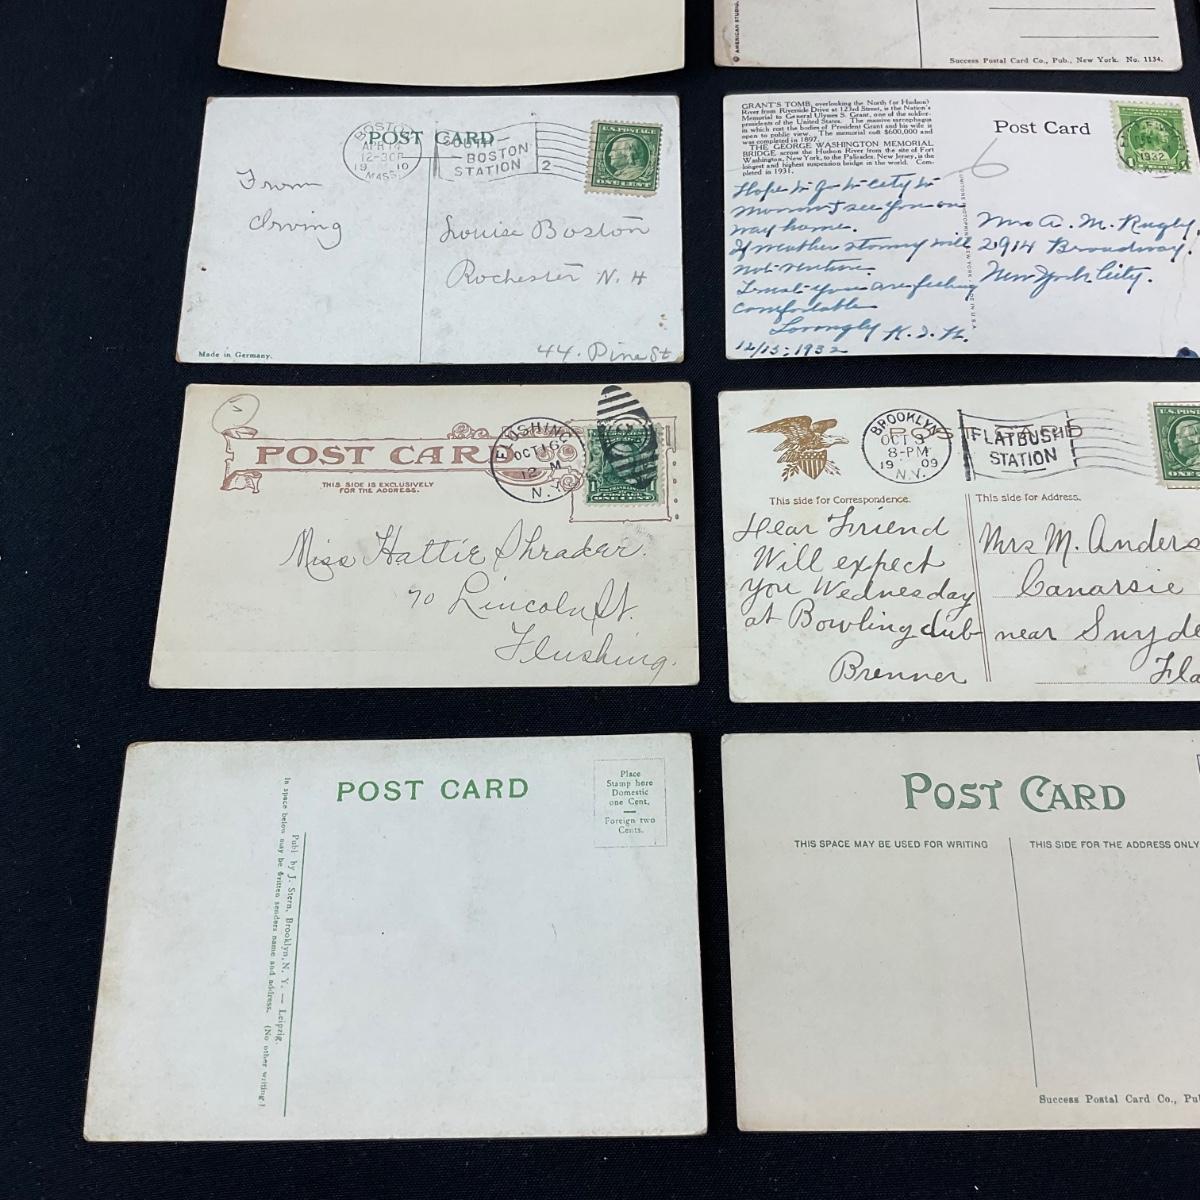 © AMERICAN STUDIO
Success Postal Card Co., Pub., New York. No. 1134.
POST CARD
BOSTON
APR 14
12-30P
19 10
MASS.
SOUTH
BOSTON
STATION
2
U.S. POSTAGE
ONE CENT
From
Irving
Louise Boston
Rochester N. H
44. Pine St
Made in Germany.
GRANT'S TOMB, overlooking the North (or Hudson)
River from Riverside Drive at 123rd Street, is the Nation's
Memorial to General Ulysses S. Grant, one of the soldier-
presidents of the United States. The massive sarcophagus
in which rest the bodies of President Grant and his wife is
open to public view. The memorial cost $600,000 and
was completed in 1897.
THE GEORGE WASHINGTON MEMORIAL
BRIDGE across the Hudson River from the site of Fort
Washington, New York, to the Palisades, New Jersey, is the
longest and highest suspension bridge in the world. Com-
pleted in 1931.
Post Card
1932
6
Hope to go to City to
morrow & see you on
way home.
If weather stormy will
not venture.
Trust you are feeling
comfortable
Lovingly K. I. H.
12/15-1932
Mrs A. M. Rugby,
2914 Broadway,
New York City.
POST CARD
THIS SIDE IS EXCLUSIVELY
FOR THE ADDRESS.
FLUSHING
OCT 16
12 M
N.Y.
ONE CENT
Miss Hattie Shrader.
70 Lincoln St.
Flushing.
POST CARD
BROOKLYN
OCT 9
8-PM
19 09
N.Y.
FLATBUSH
STATION
U.S. POS
This side for Correspondence.
This side for Address.
Dear Friend
Will expect
you Wednesday
at Bowling club
Brenner
Mrs M. Anders
Canarsie
near Snyde
Fla
POST CARD
Place
Stamp here
Domestic
one Cent,
Foreign two
Cents.
Publ by J. Stern, Brooklyn, N. Y. — Leipzig.
In space below may be written senders name and address. (No other writing)
POST CARD
THIS SPACE MAY BE USED FOR WRITING
THIS SIDE FOR THE ADDRESS ONLY
Success Postal Card Co., Pu